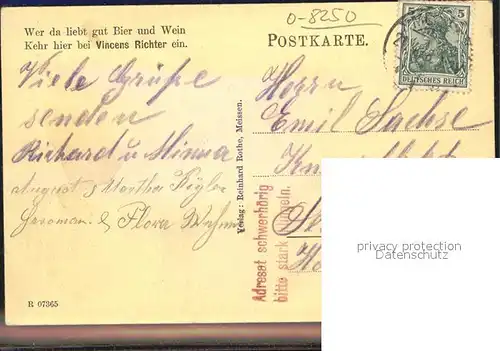 0-8250
Wer da liebt gut Bier und Wein
Kehr hier bei Vincens Richter ein.
POSTKARTE.
5 5
DEUTSCHES REICH
Viele Grüße
senden
Richard u. Minna
August & Martha
& Flora
Herrn
Emil Sachse
Verlag: Reinhard Rothe, Meissen.
Adresat schwerhörig
bitte stark
R 07365
privacy protection
Datenschutz